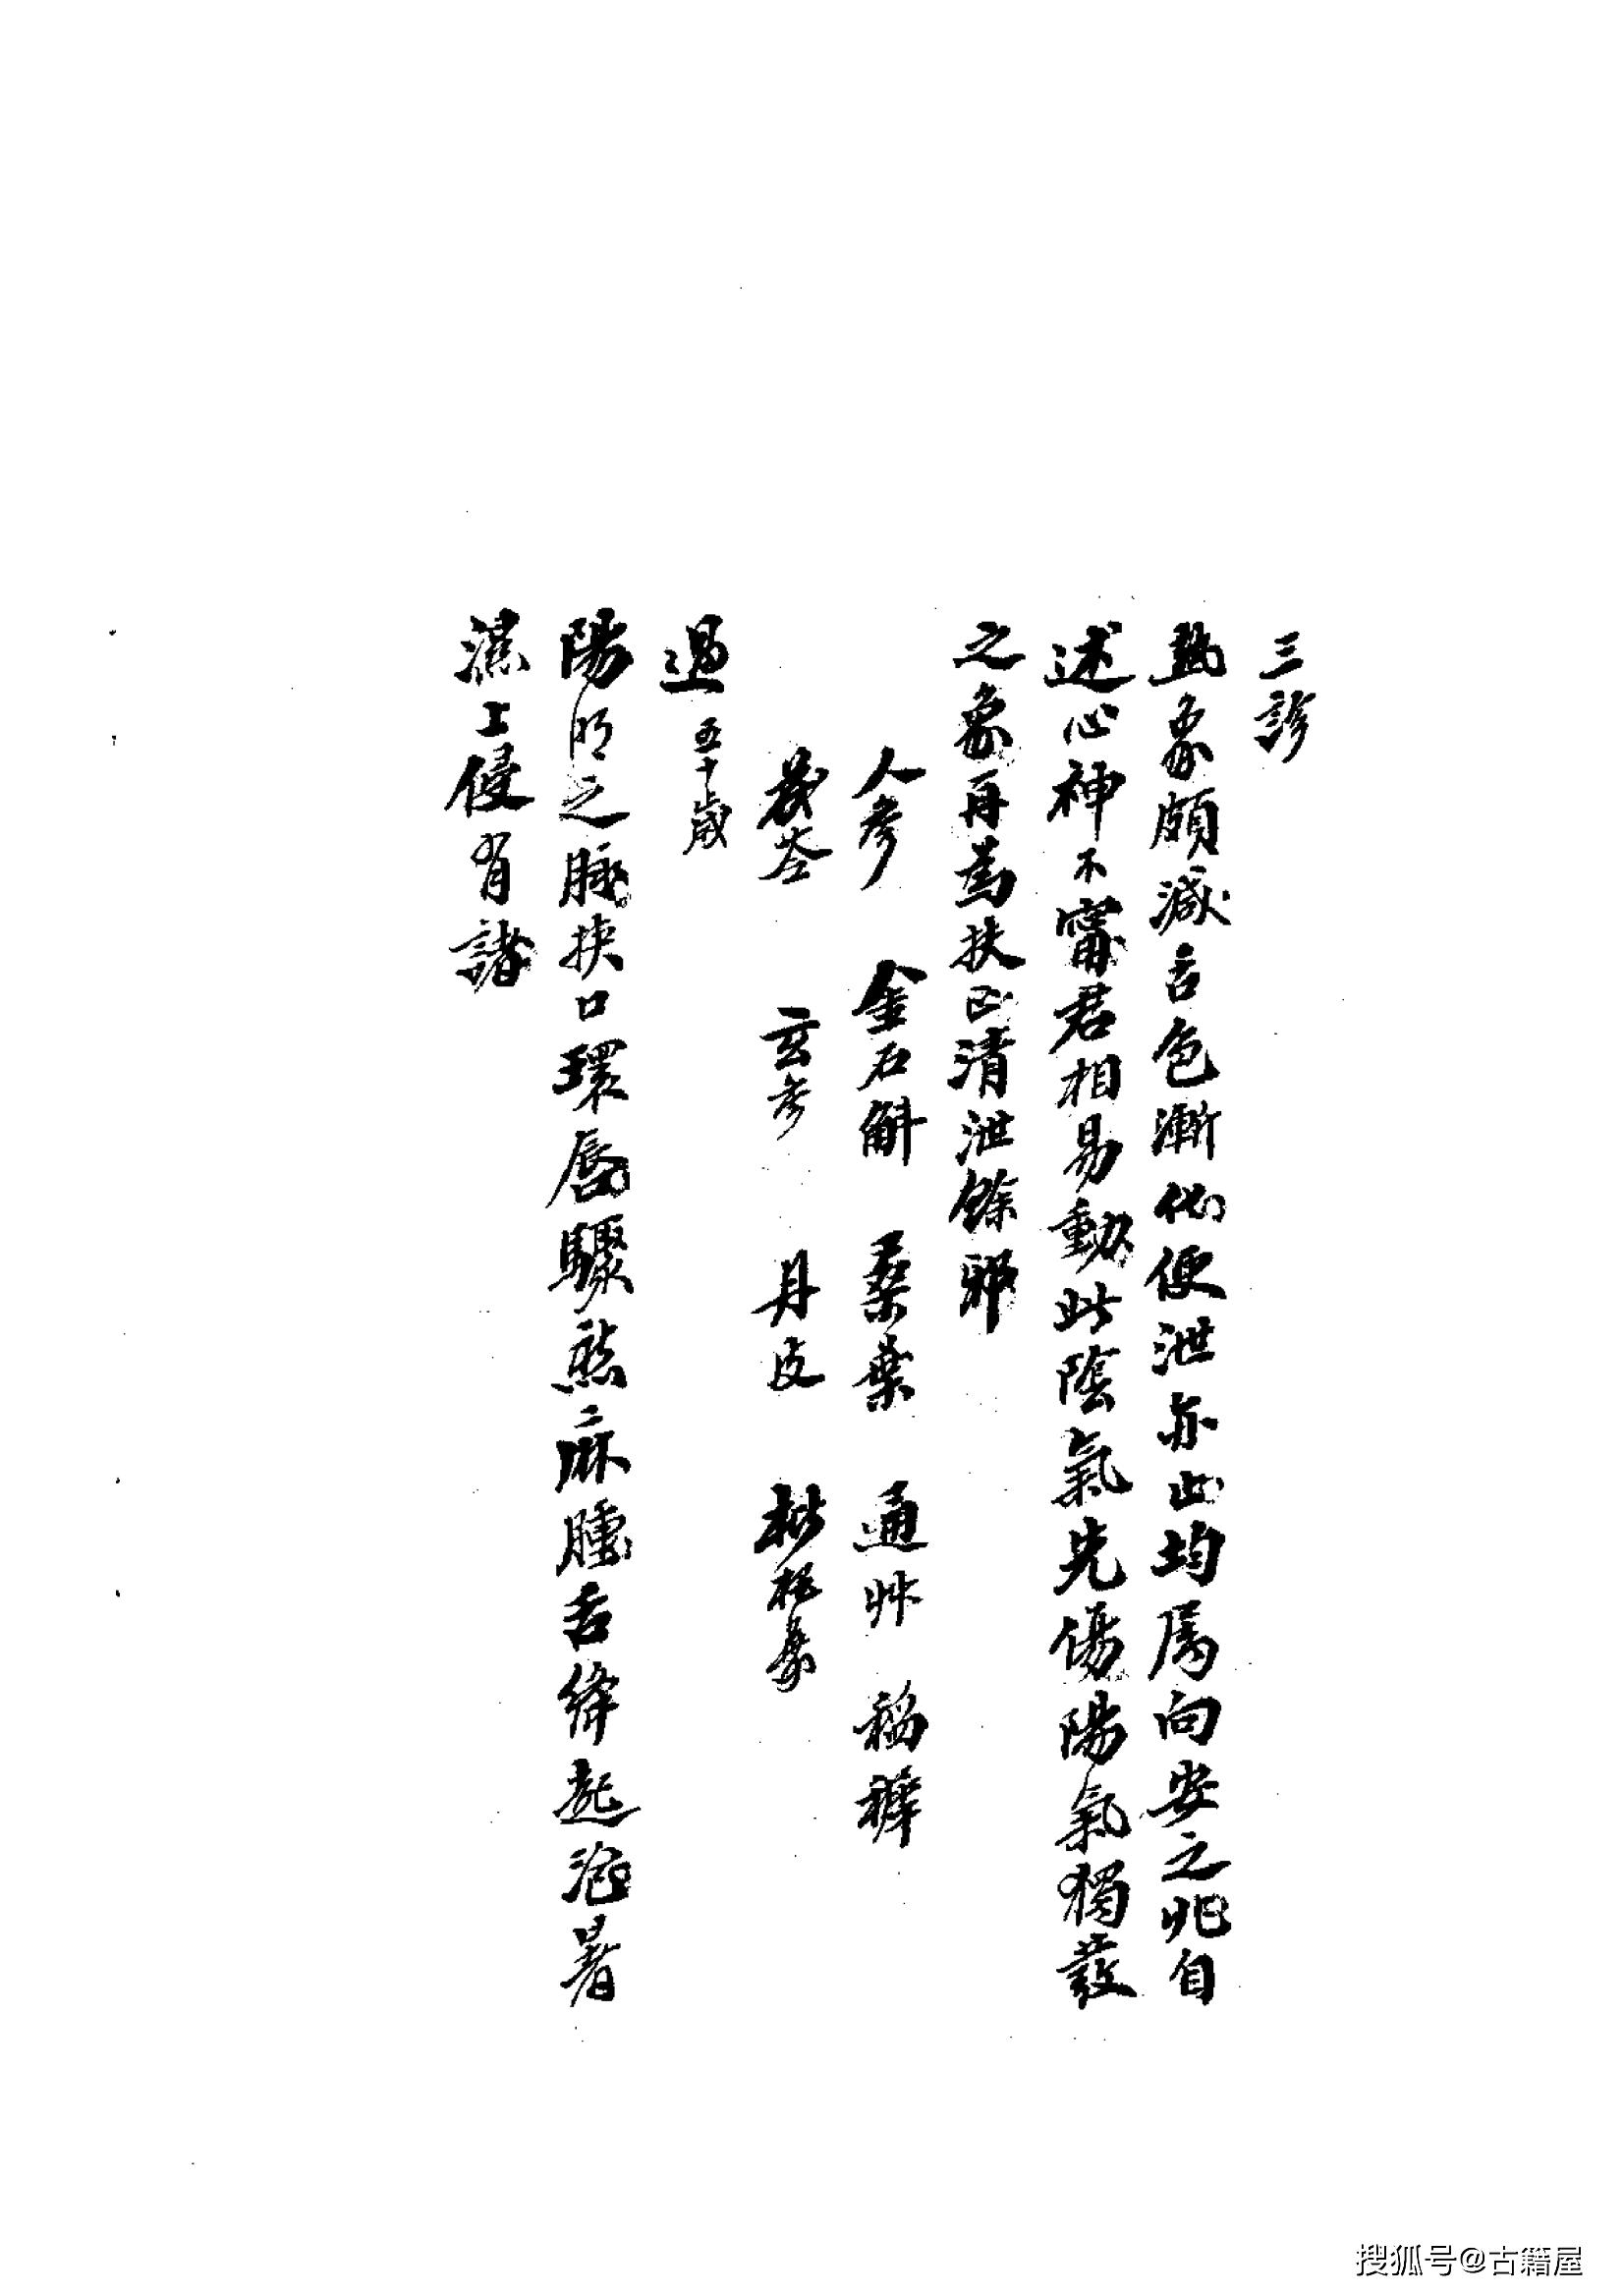 三診
熱象頗減舌色漸化便泄亦止均屬向安之兆自
述心神不寧君相易動此陰氣先傷陽氣獨發
之象再為扶正清泄餘邪
人參 金石斛 桑葉 通艸 稻穞
茯苓 玄參 丹皮 枇杷葉
過 五十歲
陽明之脈挾口環唇驟然麻腫舌絳起泡暑
濕上侵胃諸
搜狐号@古籍屋